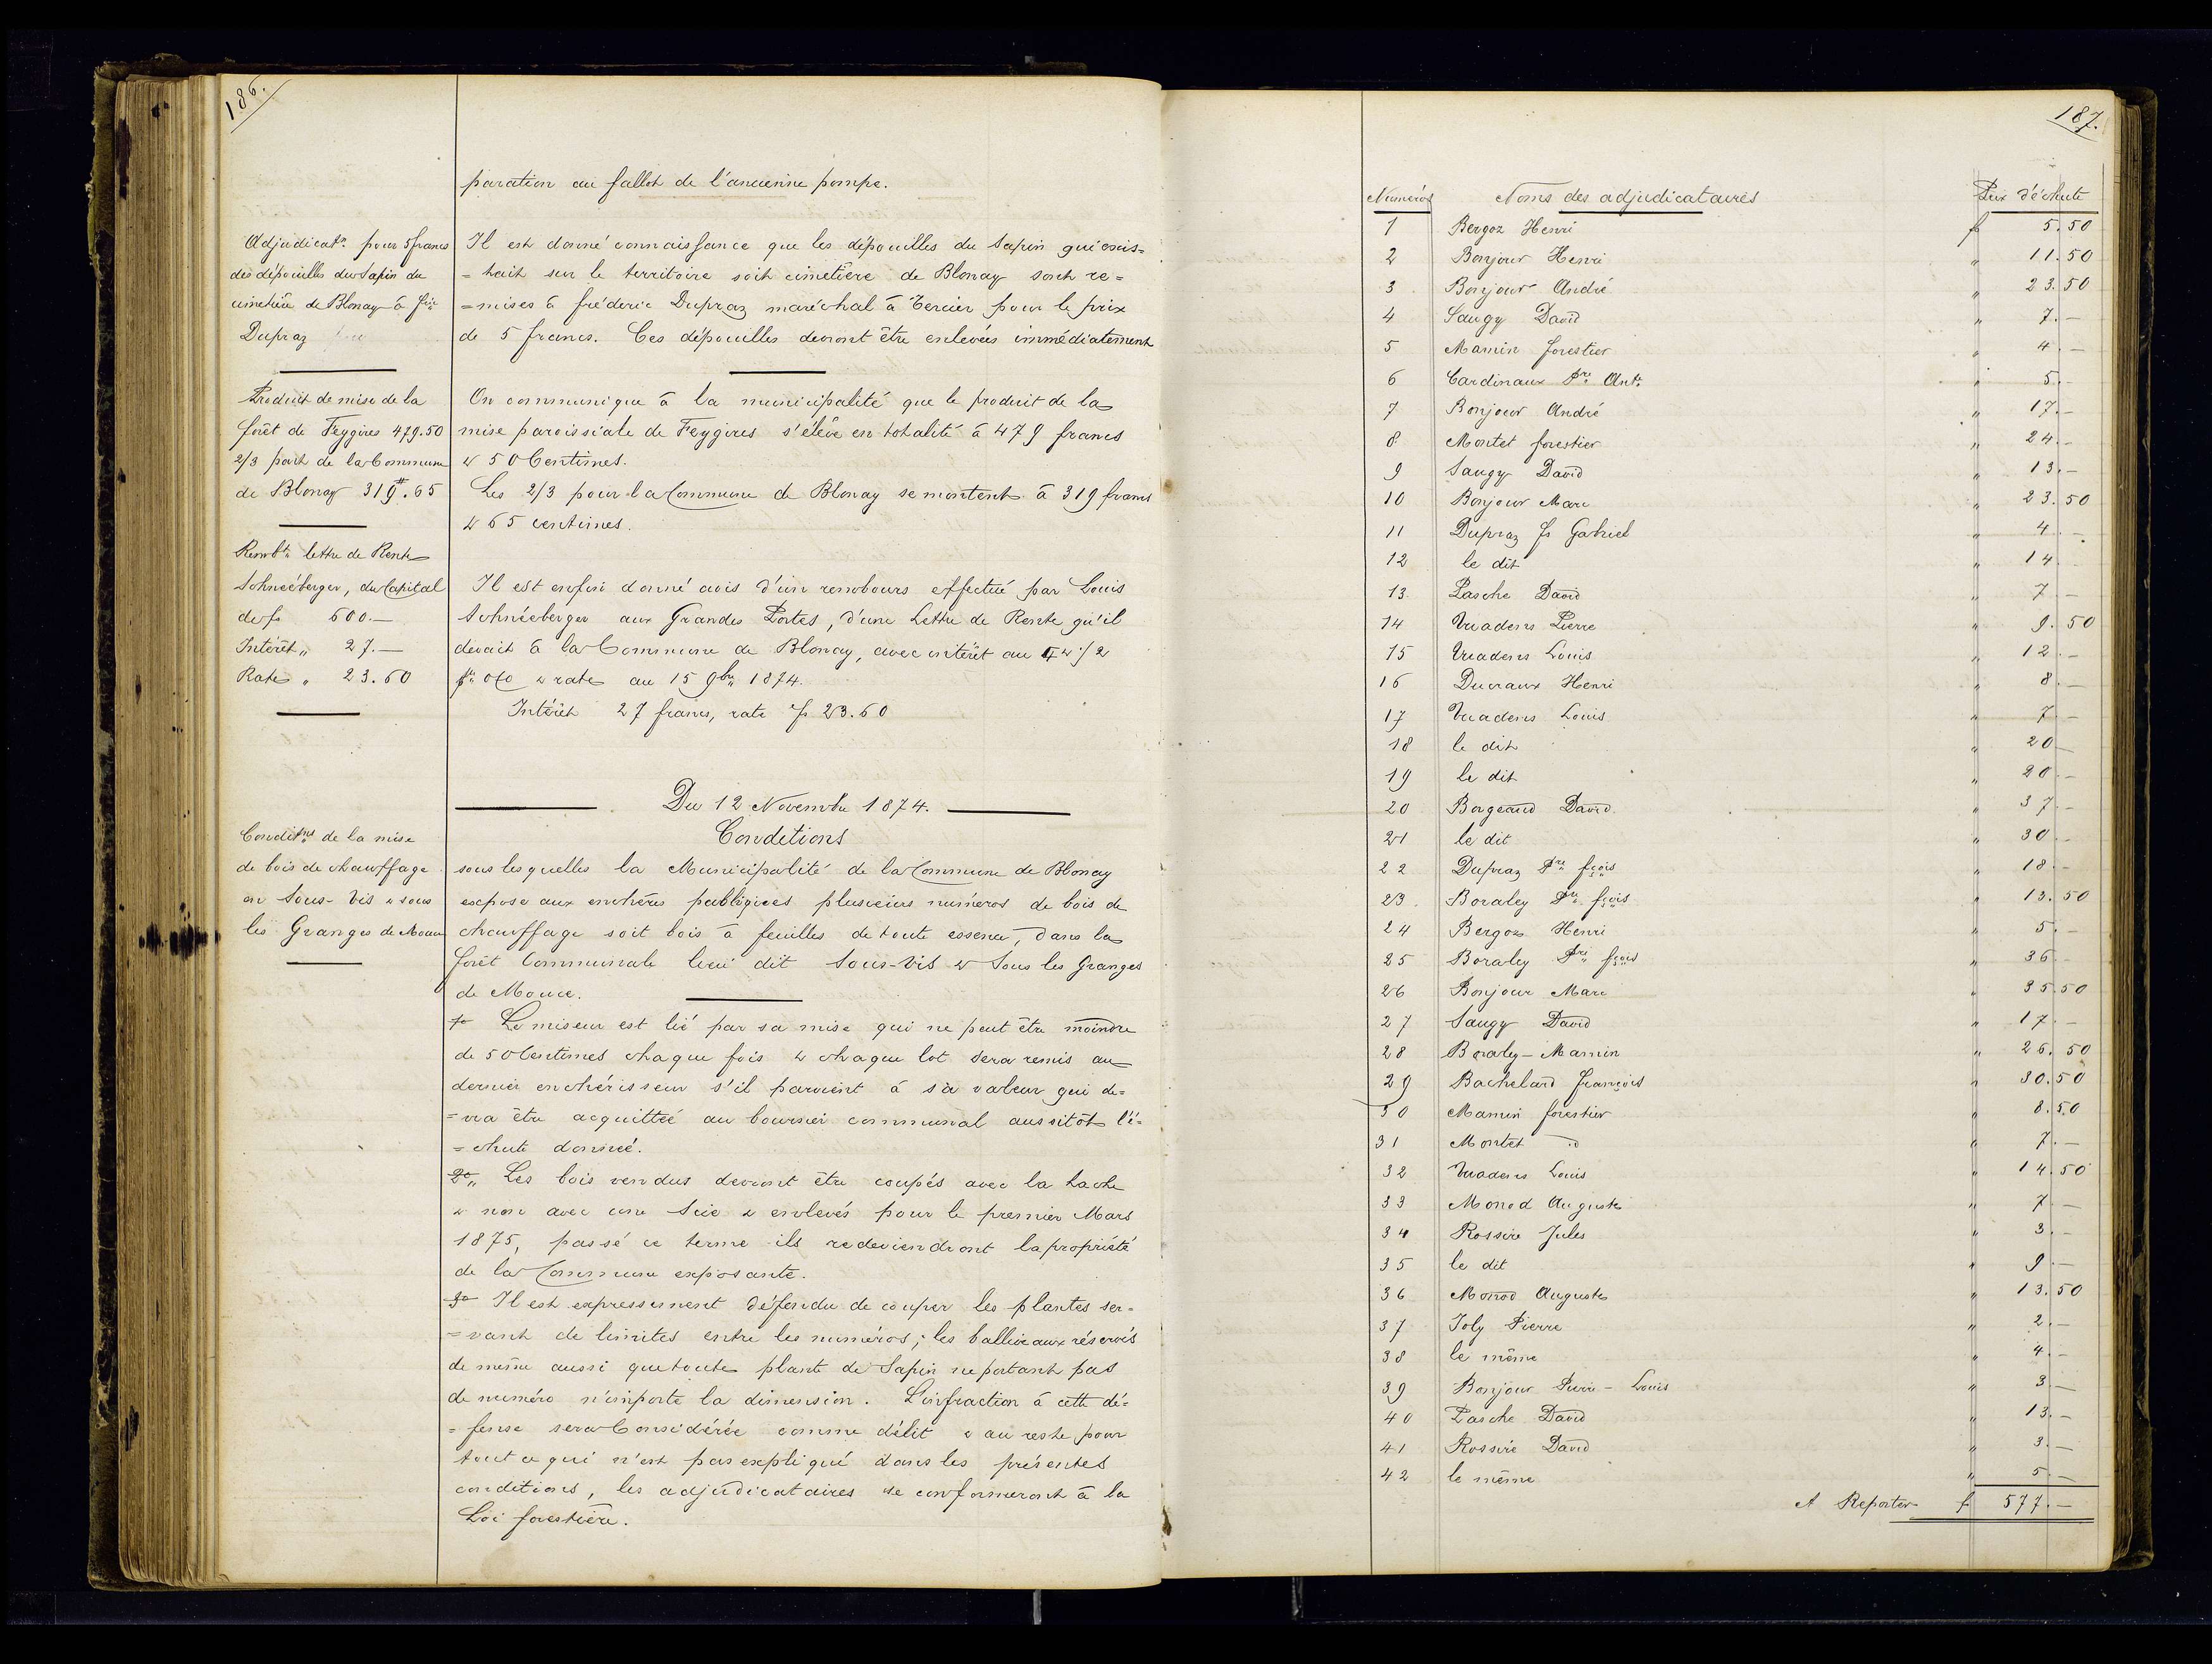 186.
paration au fallot de l'ancienne pompe.
Adjudicatn. pour 5 francs
des dépouilles du Sapin du
cimetière de Blonay à fric
Dupraz
Il est donné connaissance que les dépouilles du Sapin qui exis=
=tait sur le territoire soit cimetière de Blonay sont re=
=mises à fréderic Dupraz maréchal à Tercier pour le prix
de 5 francs. Ces dépouilles devront être enlevées immédiatement
Produit de mise de la
forêt de Feygires 479.50
2/3 part de la Commune
de Blonay 319 ff. 65
On communique à la municipalité que le produit de la
mise paroissiale de Feygires s'élève en totalité à 479 francs
& 50 Centimes.
Les 2/3 pour la Commune de Blonay se montent à 319 francs
& 65 centimes.
Rembt. lettre de Rente
Schneéberger, du Capital
de fs 600.—
Intérêt „ 27.—
Rate „ 23.60
Il est enfin donné avis d'un rembours effectué par Louis
Schnéeberger aux Grandes Portes, d'une Lettre de Rente qu'il
devait à la Commune de Blonay, avec intérêt au 4 & 1/2
pr. o/o & rate au 15 9bre 1874.
Intérêt 27 francs, rate fs 23.60
Du 12 Novembre 1874.
Conditions
Conditns de la mise
de bois de chauffage
en Sous-Vis & sous
les Granges de Mouce
sous lesquelles la Municipalité de la Commune de Blonay
expose aux enchères publiques plusieurs numéros de bois de
chauffage soit bois à feuilles de toute essence, dans la
forêt Communale lieu dit Sous-Vis & Sous les Granges
de Mouce.
1o Le miseur est lié par sa mise qui ne peut être moindre
de 50 Centimes chaque fois & chaque lot sera remis au
dernier enchérisseur s'il parvient à sa valeur qui de=
=vra être acquittée au boursier communal aussitôt l'é=
=chute donnée.
2o„ Les bois vendus devront être coupés avec la hache
& non avec une Scie & enlevés pour le premier Mars
1875, passé ce terme ils redeviendront la propriété
de la Commune exposante.
3o Il est expressement défendu de couper les plantes ser=
=vant de limites entre les numéros; les balliveaux réservés
de même aussi que toute plante de Sapin ne portant pas
de numéro n'importe la dimension. L'infraction à cette dé=
=fense sera Considérée comme délit & au reste pour
tout ce qui n'est pas expliqué dans les présentes
conditions, les adjudicataires se conformeront à la
Loi forestière.
187.
Numéros Noms des adjudicataires Prix d'échute
1 Bergoz Henri fs 5.50
2 Bonjour Henri „ 11.50
3 Bonjour André „ 23.50
4 Saugy David „ 7.—
5 Mamin forestier „ 4.—
6 Cardinaux Pre Ante „ 5.—
7 Bonjour André „ 17.—
8 Montet forestier „ 24.—
9 Saugy David „ 13.—
10 Bonjour Marc „ 23.50
11 Dupraz fs Gabriel „ 4.—
12 le dit „ 14.
13 Pasche David „ 7.—
14 Vuadens Pierre „ 9.50
15 Vuadens Louis „ 12.—
16 Ducraux Henri „ 8.—
17 Vuadens Louis „ 7.—
18 le dit „ 20.—
19 le dit „ 20.—
20 Borgeaud David „ 37.—
21 le dit „ 30.—
22 Dupraz Pre fçois „ 18.—
23 Boraley Pre fçois „ 13.50
24 Bergoz Henri „ 5.—
25 Boraley Pre fçois „ 36.—
26 Bonjour Marc „ 35.50
27 Saugy David „ 17.—
28 Boraley-Mamin „ 26.50
29 Bachelard françois „ 30.50
30 Mamin forestier „ 8.50
31 Montet id „ 7.—
32 Vuadens Louis „ 14.50
33 Monod Auguste „ 7.—
34 Rossire Jules „ 3.—
35 le dit „ 9.—
36 Monod Auguste „ 13.50
37 Joly Pierre „ 2.—
38 le même „ 4.—
39 Bonjour Pierre-Louis „ 3.—
40 Pasche David „ 13.—
41 Rossire David „ 3.—
42 le même „ 5.—
A Reporter fs 577.—